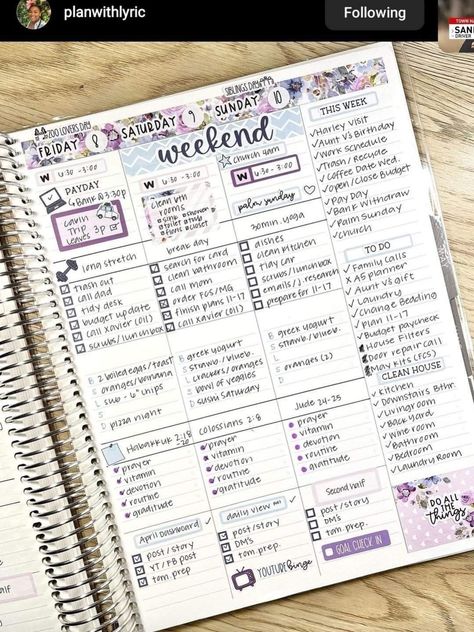 planwithlyric
Following
TOWN
SAN
DRIVER
ZOO LOVERS DAY
SIBLINGS DAY
FRIDAY 8
SATURDAY 9
SUNDAY 10
weekend
W 6:30 -3:00
PAYDAY
Bank @ 3:30p
Gavin
Trip
Leaves 3p
long stretch
trash out
call dad
tidy desk
budget update
call Xavier (011)
scrubs/lunchbox
B 2 boiled eggs/toast
S oranges/banana
L sub - 6" chips
S
D pizza night
Habakkuk 2:18
-20
prayer
vitamin
devotion
routine
graditude
April Dashboard
post/story
YT/FB post
tom. prep
W 6:30 - 3:00
clean bth
rooms
sink
shower
toilet
tub
floor
closet
break day
search for card
clean bathroom
call mom
order FCS/MG
finish plans 11-17
call Xavier (011)
B
S greek yogurt
L strawb/blueb.
S crackers/oranges
D bowl of veggies
sushi Saturday
Colossians 2:8
prayer
vitamin
devotion
routine
gratitude
daily view
post/story
DM's
tom. prep.
YOUTUBE binge
church 9am
W 6:30 - 3:00
palm sunday
30min. yoga
dishes
clean kitchen
tidy car
scrubs/lunchbox
emails/J. research
prepare for 11-17
B greek yogurt
S strawb/blueb.
L
S oranges (2)
D
Jude 24-25
prayer
vitamin
devotion
routine
gratitude
Second half
post/story
DM's
tom. prep.
GOAL CHECK IN
THIS WEEK
Harley Visit
Aunt V's Birthday
Work Schedule
Trash/Recycle
Coffee Date Wed.
Open/Close Budget
Pay Day
Bank Withdraw
Palm Sunday
Church
TO DO
Family calls
X A5 planner
Aunt V's gift
Laundry
Change Bedding
Plan 11-17
Budget paycheck
House Filters
Door repair call
May Kits (FCS)
CLEAN HOUSE
Kitchen
Downstairs Bthr.
Livingroom
Back yard
Wine room
Bathroom
Bedroom
Laundry Room
DO ALL
THE
things
half